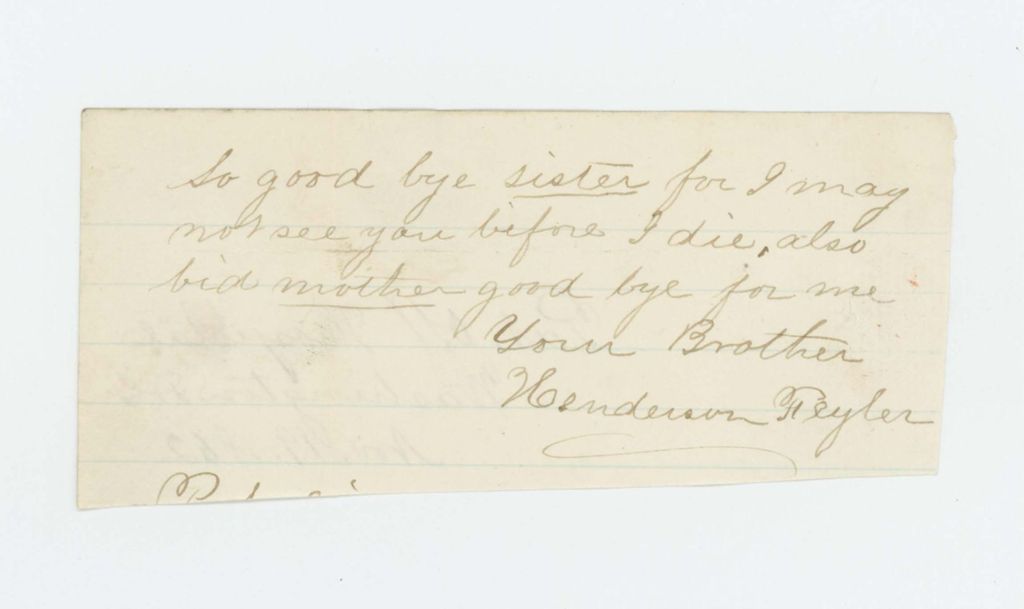 So good bye sister for I may
not see you before I die, also
bid mother good bye for me
Your Brother
Henderson Feyler